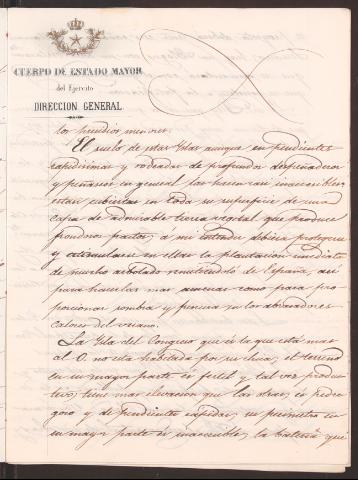 CUERPO DE ESTADO MAYOR
del Ejército
DIRECCION GENERAL
los hendios menores.
El suelo de estas Yslas aunque en pendientes
rapidísimas y rodeadas de profundos despeñaderos
y peñascos en general las hacen inaccesibles
estan cubiertas en toda su superficie de una
capa de admirable tierra vegetal que produce
frondosos pastos; á mi entender debiera protegerse
y estimularse en ellas la plantacion inmediata
de mucho arbolado remitiéndolo de España, así
para hacerlas mas amenas como para pro-
porcionar sombra y frescura en los abrasadores
calores del verano.
La Ysla del Congreso que és la que está mas
al O. no esta habitada por nadie, el terreno
en su mayor parte es fertil y tal vez produc-
tivo; tiene mas elevacion que las otras; es pedre-
goso y de pendientes rápidas, su perímetro en
su mayor parte és inaccesible, la bateria que